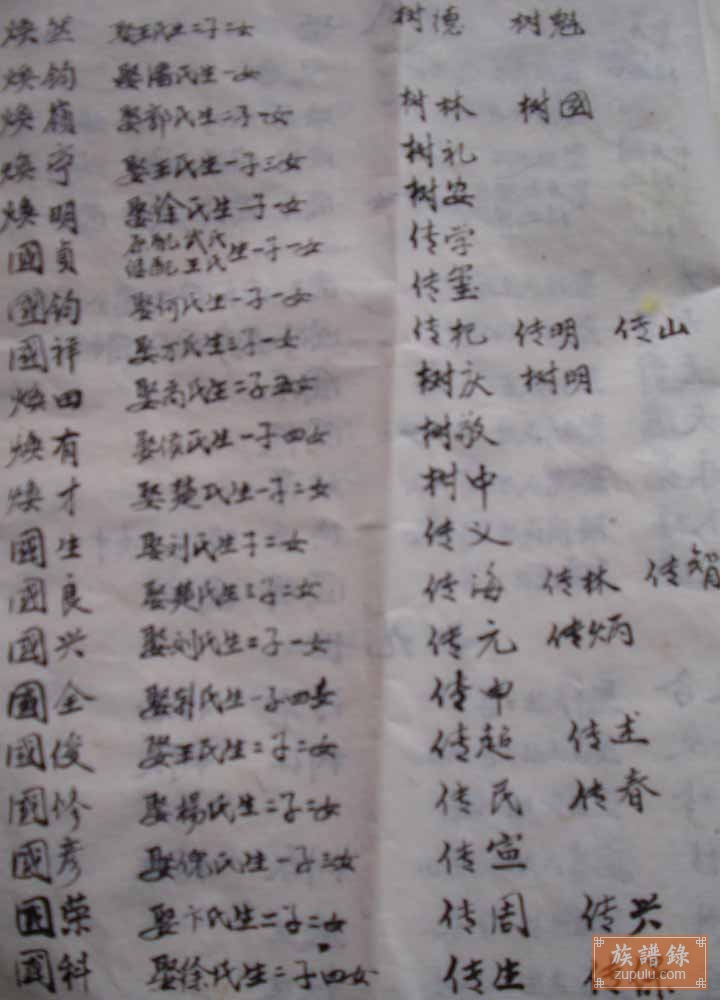 焕兰 娶王氏生二子二女 树德 树魁
焕钧 娶潘氏生一女
焕岭 娶郭氏生二子一女 树林 树国
焕亭 娶王氏生一子三女 树礼
焕明 娶徐氏生一子一女 树安
國貞 原配武氏 继配王氏 生一子一女 传学
國钧 娶何氏生一子一女 传玺
國祥 娶万氏生三子一女 传杞 传明 传山
焕田 娶高氏生二子五女 树庆 树明
焕有 娶侯氏生一子四女 树敬
焕才 娶樊氏生一子二女 树中
國生 娶刘氏生子二女 传义
國良 娶樊氏生三子二女 传海 传林 传智
國兴 娶刘氏生二子一女 传元 传炳
國全 娶郭氏生一子四女 传申
國俊 娶王氏生二子二女 传超 传
國修 娶楊氏生二子二女 传民 传春
國彦 娶倪氏生一子三女 传宣
國荣 娶卞氏生二子二女 传周 传兴
國科 娶徐氏生二子四女 传生
族譜錄
zupulu.com